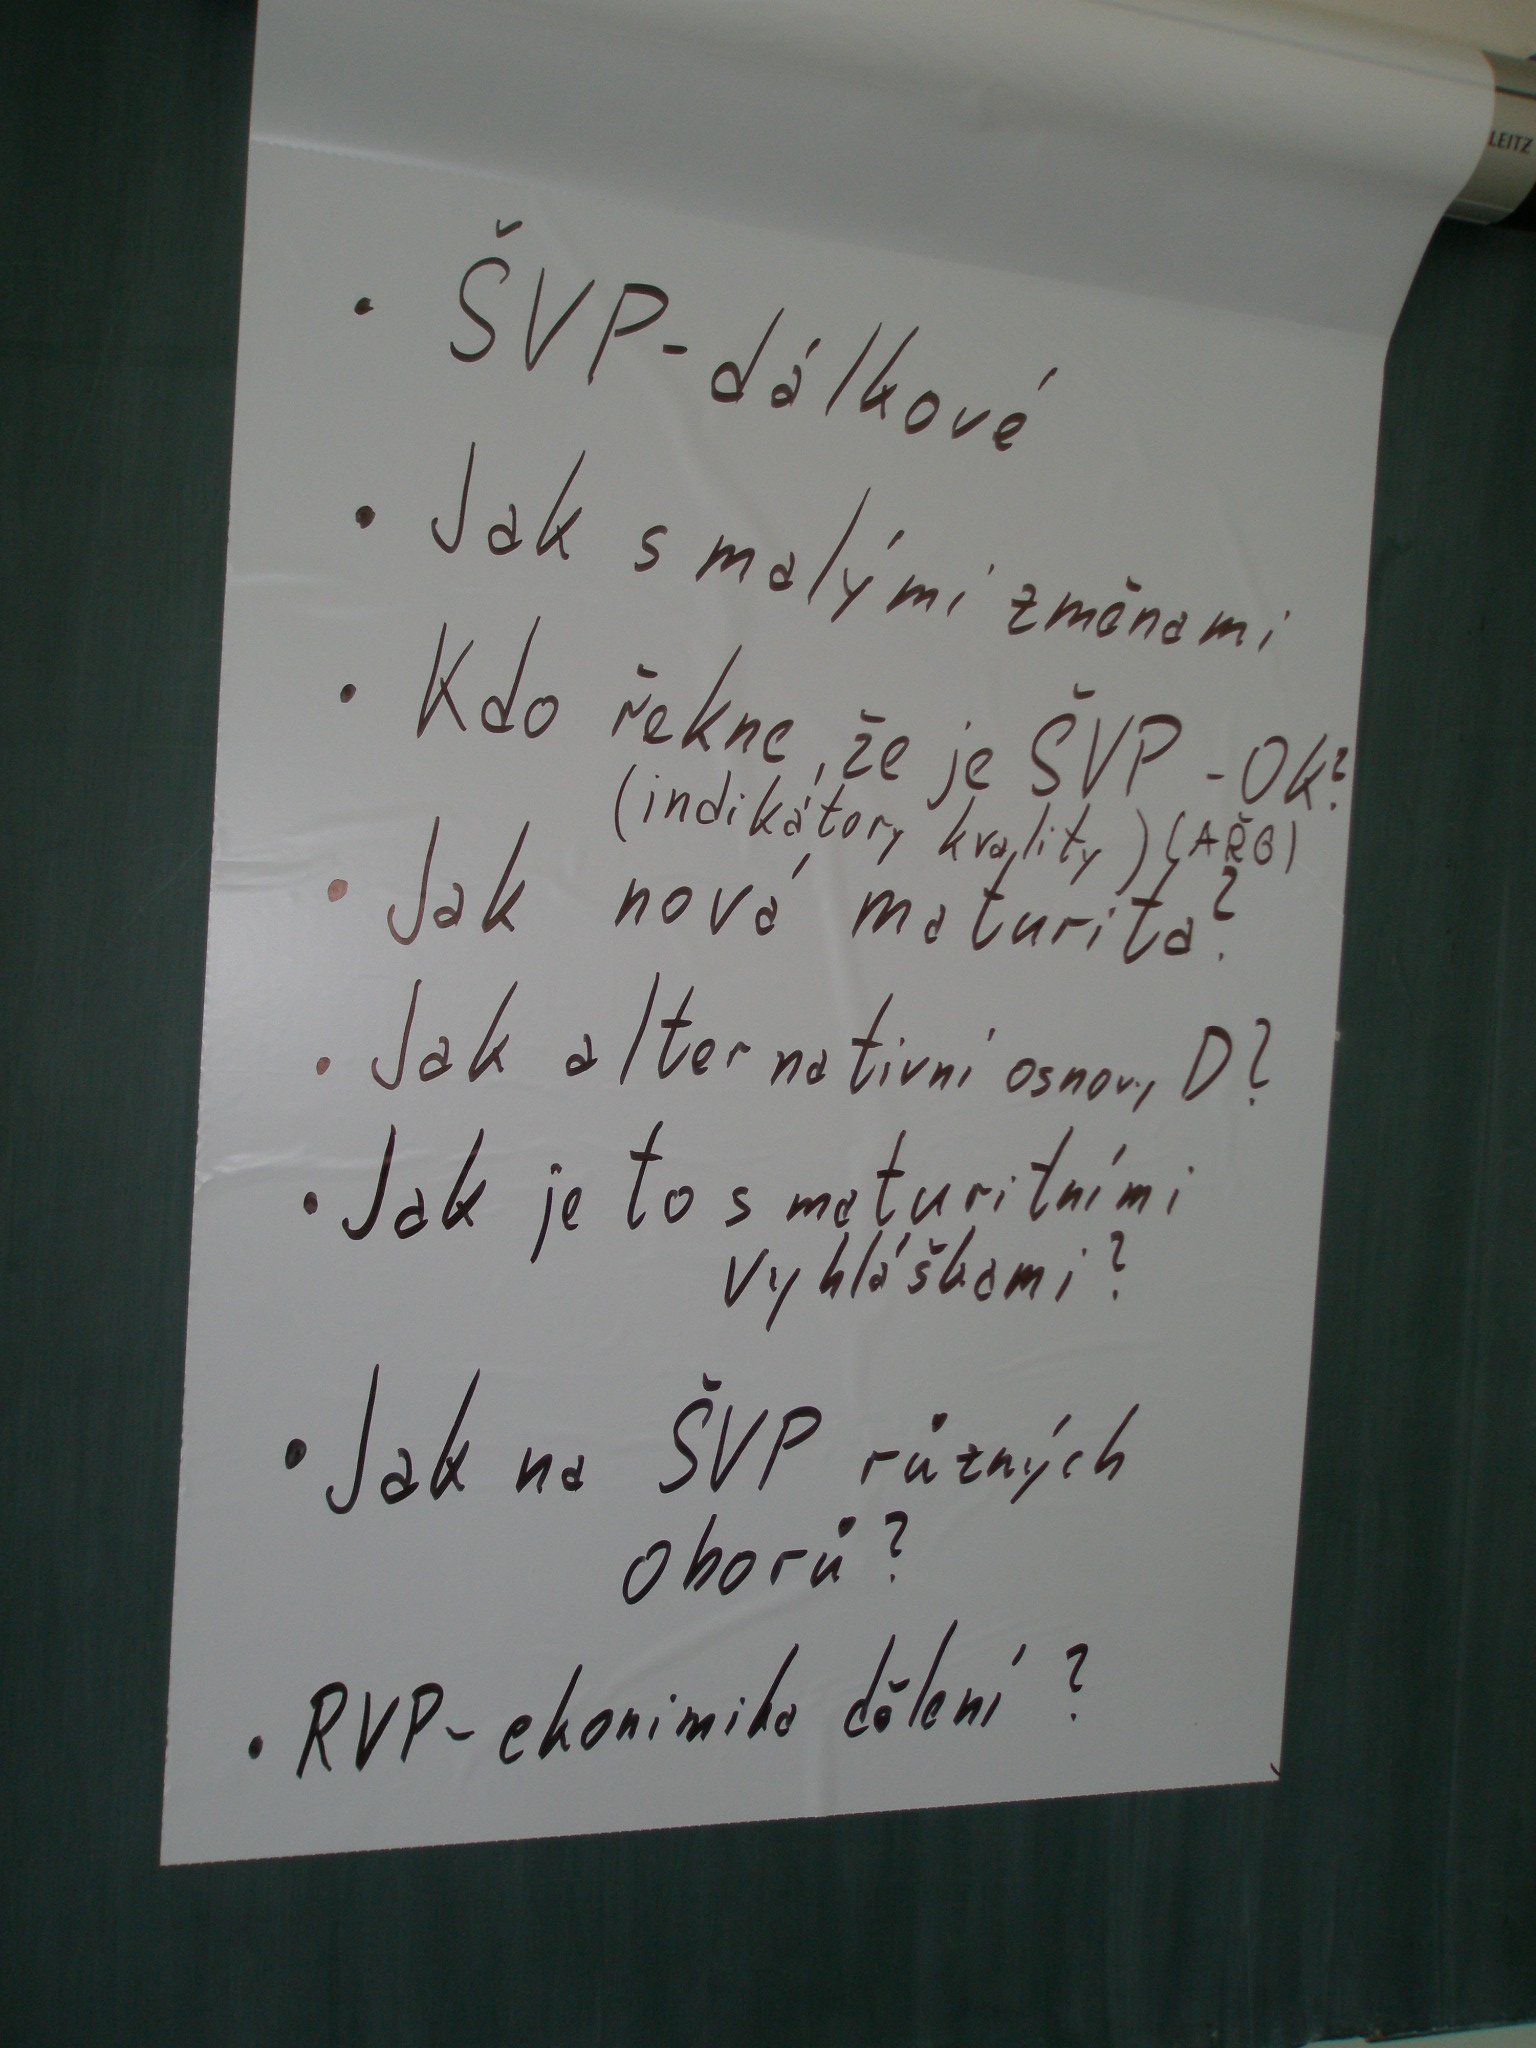 LEITZ
• ŠVP-dálkové
• Jak s malými změnami
• Kdo řekne, že je ŠVP - Ok?
(indikátory kvality) (AŘG)
• Jak nová maturita?
• Jak alternativní osnovy D?
• Jak je to s maturitními
vyhláškami?
• Jak na ŠVP různých
oborů?
• RVP- ekonimika dělení?